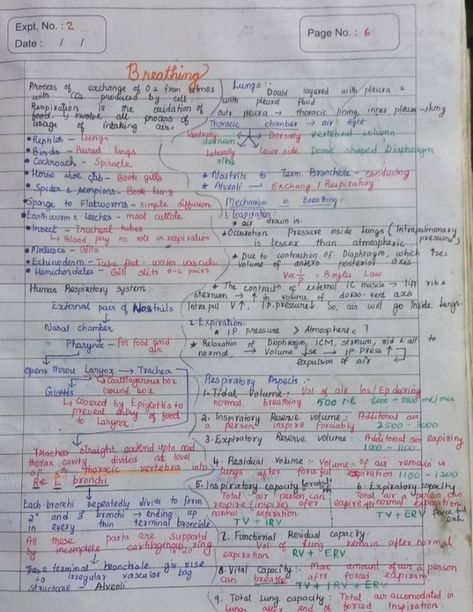 Expt. No. : 2
Date : / /
Page No. : 6
Breathing
Process of exchange of O2 from atmos
with CO2 produced by cell
Respiration is the oxidation of
food. & involve all process of
usage of intaking air.
• Reptiles - Lungs
• Birds - Paired lungs
• Cockroach - Spiracle
• Horse shoe crab - Book gills
• Spider & scorpions - Book lung
• Sponge to Flatworms - simple diffusion
• Earthworm & Leeches - moist cuticle
• Insect - Tracheal tubes
↳ Blood play no role in respiration
• Molluscs - Gills
• Echinoderm - Tube feet - water vascular
• Hemichordates - Gill slits
Human Respiratory system :-
External pair of Nostrils
↓
Nasal chamber
↓
Pharynx - for food and air
↓
opens throu Larynx → Trachea
↳ Cartilagenous box
(sound box
Glottis
↳ covered by Epiglottis to
prevent entry of food
to Larynx
Trachea - straight extend upto mid
thorax cavity divided at level
of 5th Thoracic vertebra into
bronchi
Each bronchi repeatedly divide to form
2° and 3° bronchi → ending up
in every thin terminal bronchiole
All these parts are supported
by incomplete cartilagenous ring
These terminal bronchiole give rise
to irregular vascular bag
structure - Alveoli
Lungs :-
Doubl layered with pleura &
with pleural fluid
outr pleura → thoracic lining, inner pleura → lung
Thoracic chamber → air tight
Ventrally sternum Dorsally vertebral column
Laterally ribs Lower side Dome shaped Diaphragm
• Nostrils to Term. Bronchiole - conducting
• Alveoli - Exchang / Respiratory
Mechanism in Breathing
1. Inspiration
• air drawn in
• Occuration Pressure inside lungs (Intrapulmonary
is lesser than atmospheric pressure)
• Due to contraction of Diaphragm, which ↑ses
volume of antero posterior axis
V α 1/P - Boyles Law
• The contractn of external IC muscle →
sternum → ↑ in volume of dorso-vent axis
Intrapul V↑, I.P. pressure↓. So, air will go inside lungs.
2. Expiration:
• I.P. pressure > Atmospheric
• Relaxation of Diaphragm, ICM, sternum, rid & all to
normal → Volume ↓se → IP Press ↑
expulsion of air
Respiratory Aspects :-
1. Tidal Volume : Vol of air Ins/Ep during
normal breathing 500 ml 6000 - 8000 ml/min
2. Inspiratory Reserve volume : Additional air
a person inspire forciably 2500 - 3000
3. Expiratory Reserve volume : Additional air expiring
1000 - 1100
4. Residual Volume : Volume of air remain in
lungs after forceful expiration 1100 - 1200
5. Inspiratory capacity
Total air person can
respire (inspire) after
normal expiration
TV + IRV
6. Expiratory capacity
Total air a person can
expire after normal
TV + ERV
7. Functional Residual capacity :
Vol of lung remain after normal
expiration RV + ERV
8. Vital Capacity : Max amount of air a person
can breathe aftr forced expiratn
TV + IRV + ERV
9. Total lung capacity : Total air accomodated in
lungs at end of forced inspiration.